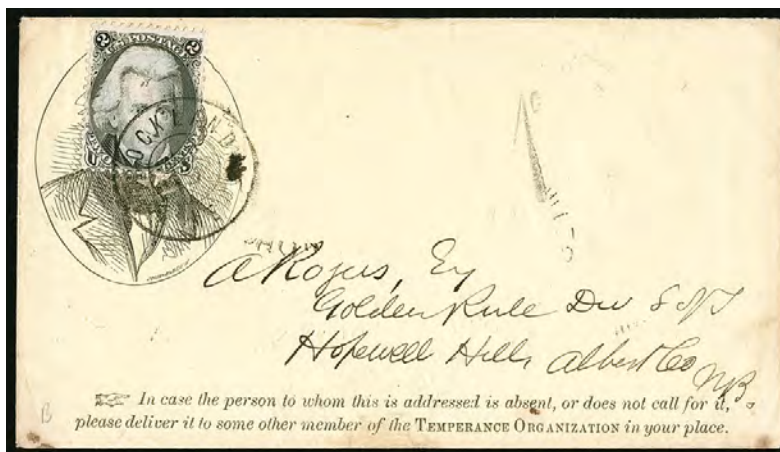 2 U.S. POSTAGE 2
A Rogers, Esq
Golden Rule Div S of T
Hopewell Hill, Albert Co
N.B.
In case the person to whom this is addressed is absent, or does not call for it,
please deliver it to some other member of the TEMPERANCE ORGANIZATION in your place.
B